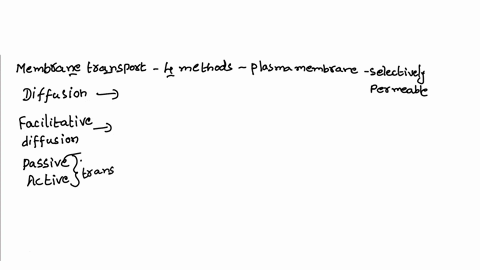 Membrane transport - 4 methods - plasma membrane - selectively
Permeable
Diffusion →
Facilitative →
diffusion
Passive
Active } trans